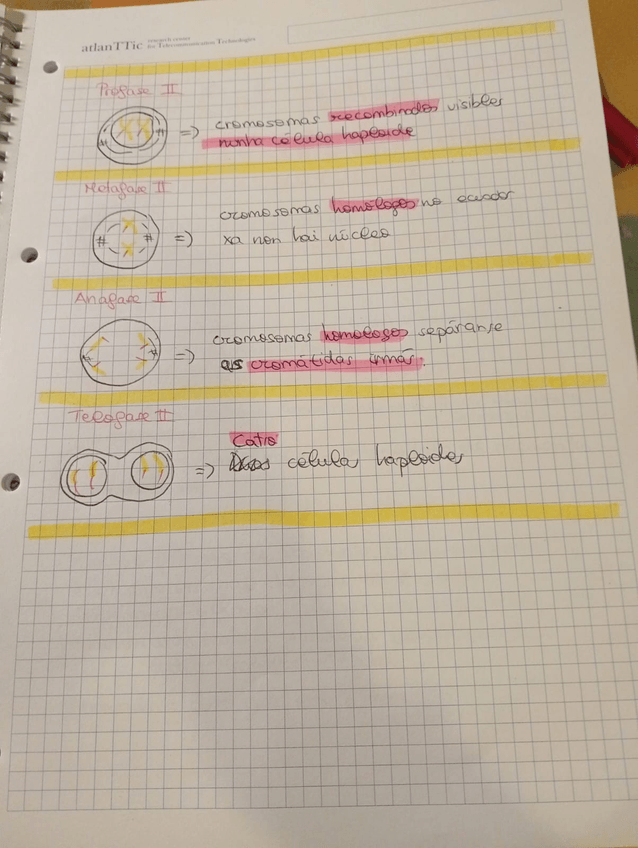 atlanTTic
research center
for Telecommunication Technologies
Profase II
=> cromosomas recombinados visibles
nunha célula haploide
Metafase II
cromosomas homólogos no ecuador
=> xa non hai núcleo
Anafase II
cromosomas homologos sepáranse
=> as cromátidas irmás.
Telofase II
Catro
=> célula haploides